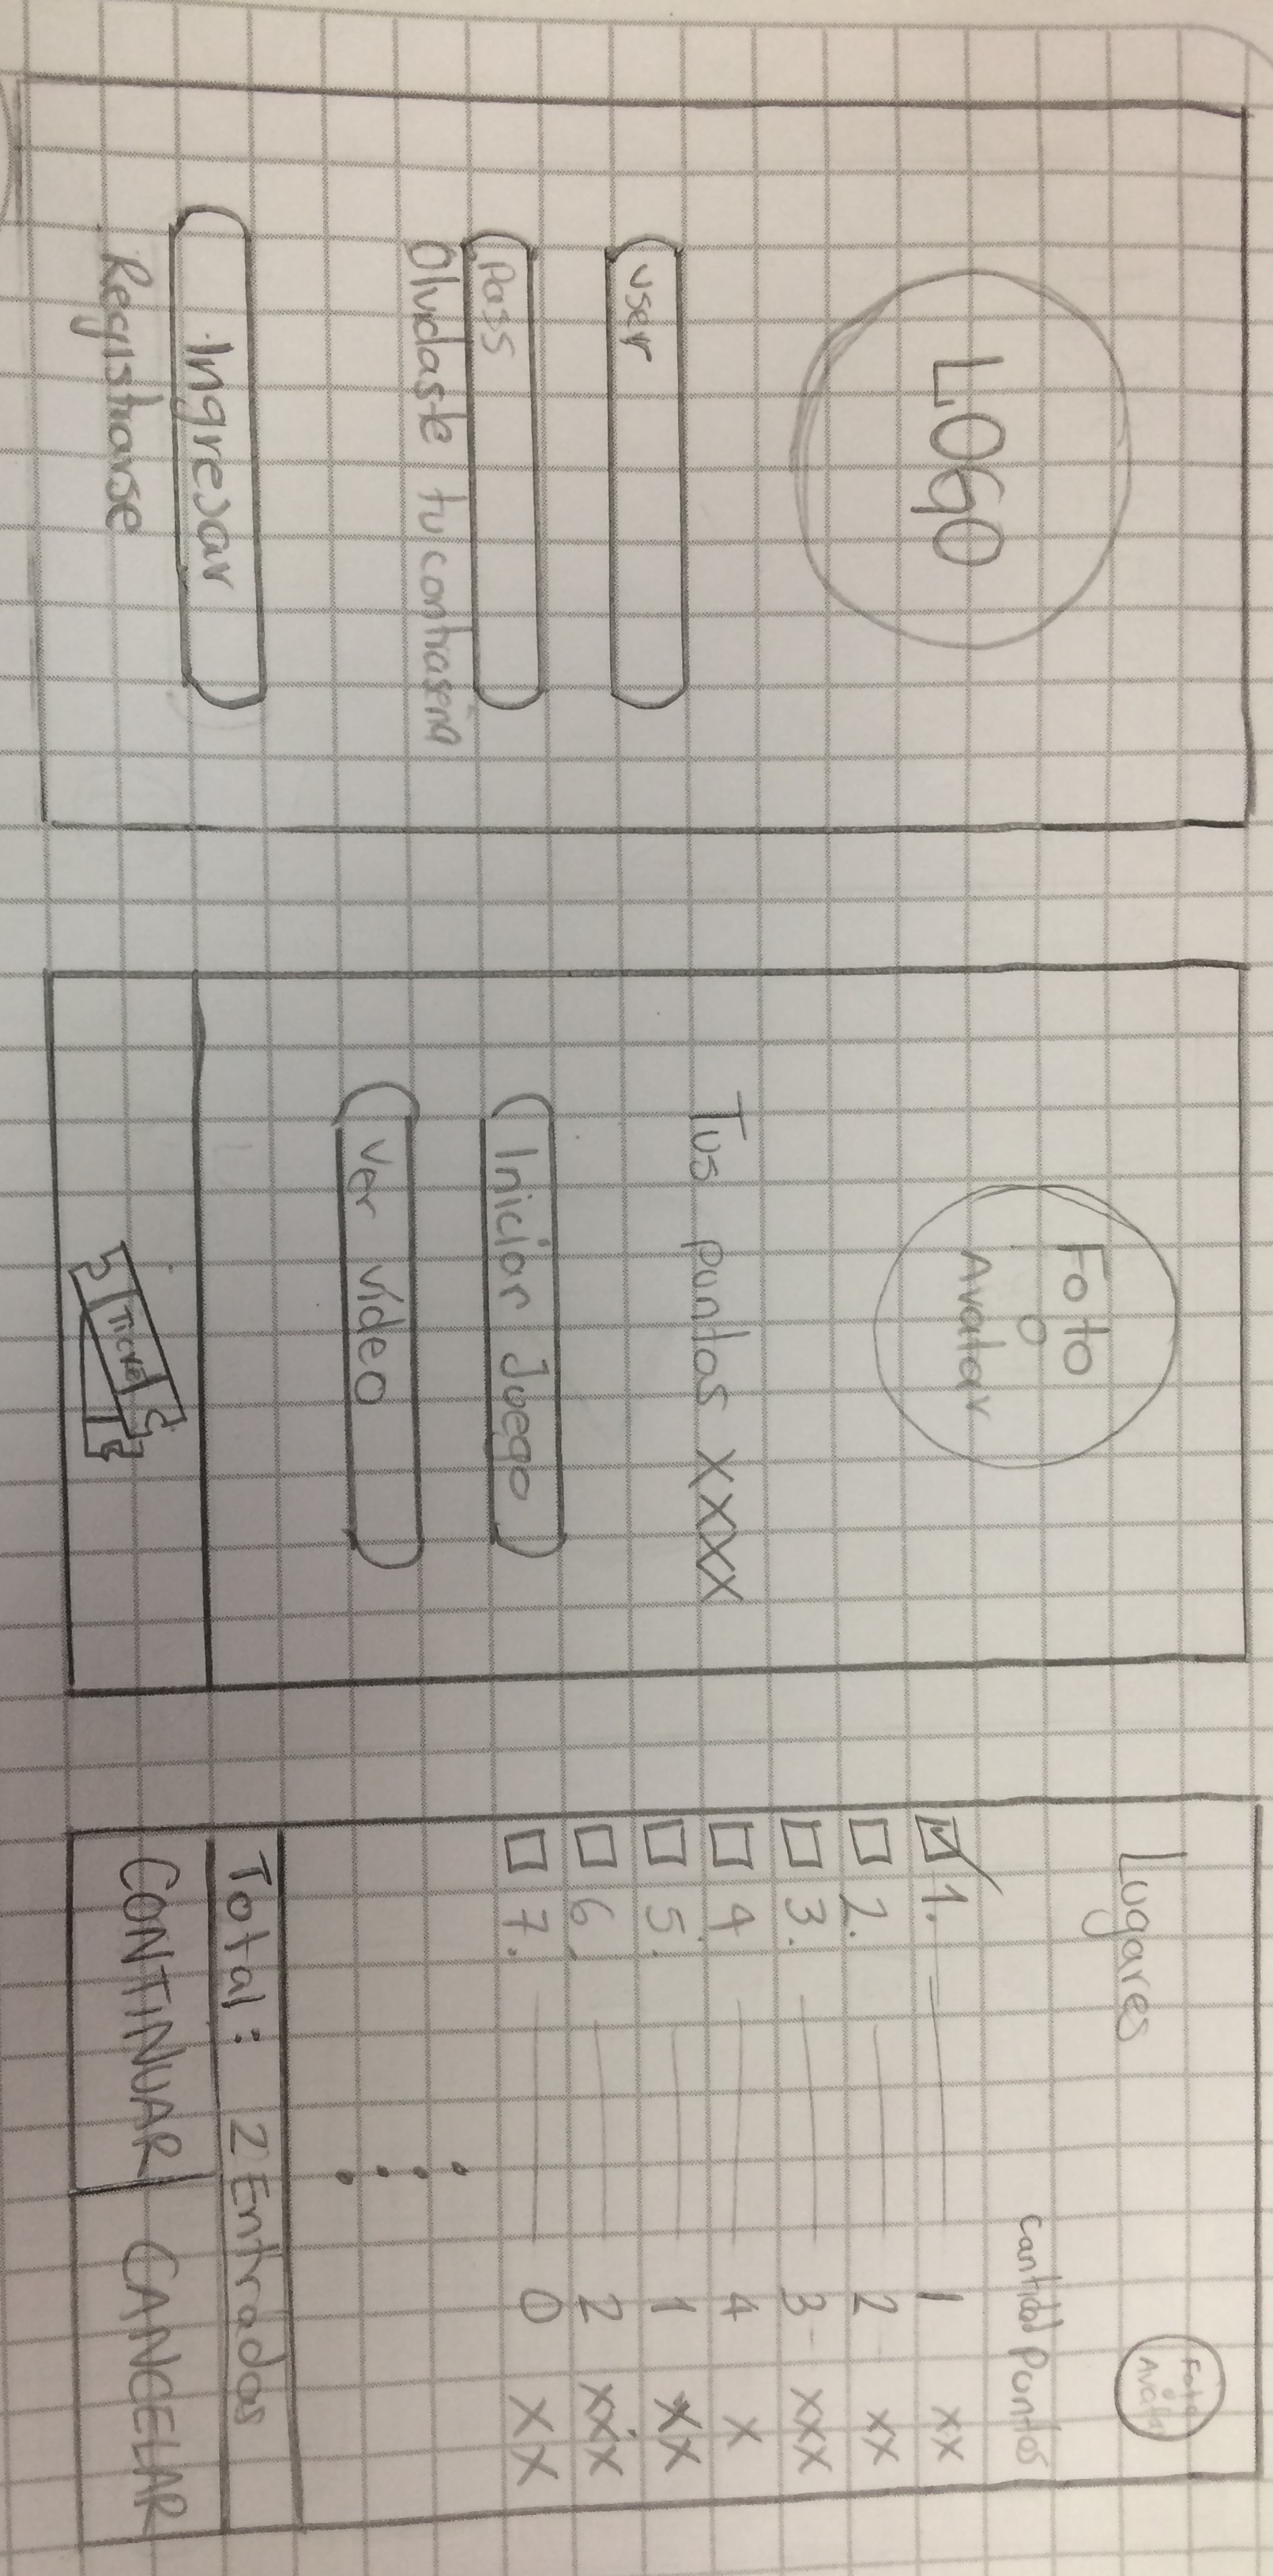 LOGO
user
Pass
Olvidaste tu contraseña
Ingresar
Registrarse
Foto
o
Avatar
Tus puntos XXXX
Iniciar Juego
Ver video
Ticket
Lugares
Foto
o
Avatar
Cantidad Puntos
1. 1 XX
2. 2 XX
3. 3 XXX
4. 4 X
5. 1 XX
6. 2 XXX
7. 0 XX
Total: 2 Entradas
CONTINUAR CANCELAR